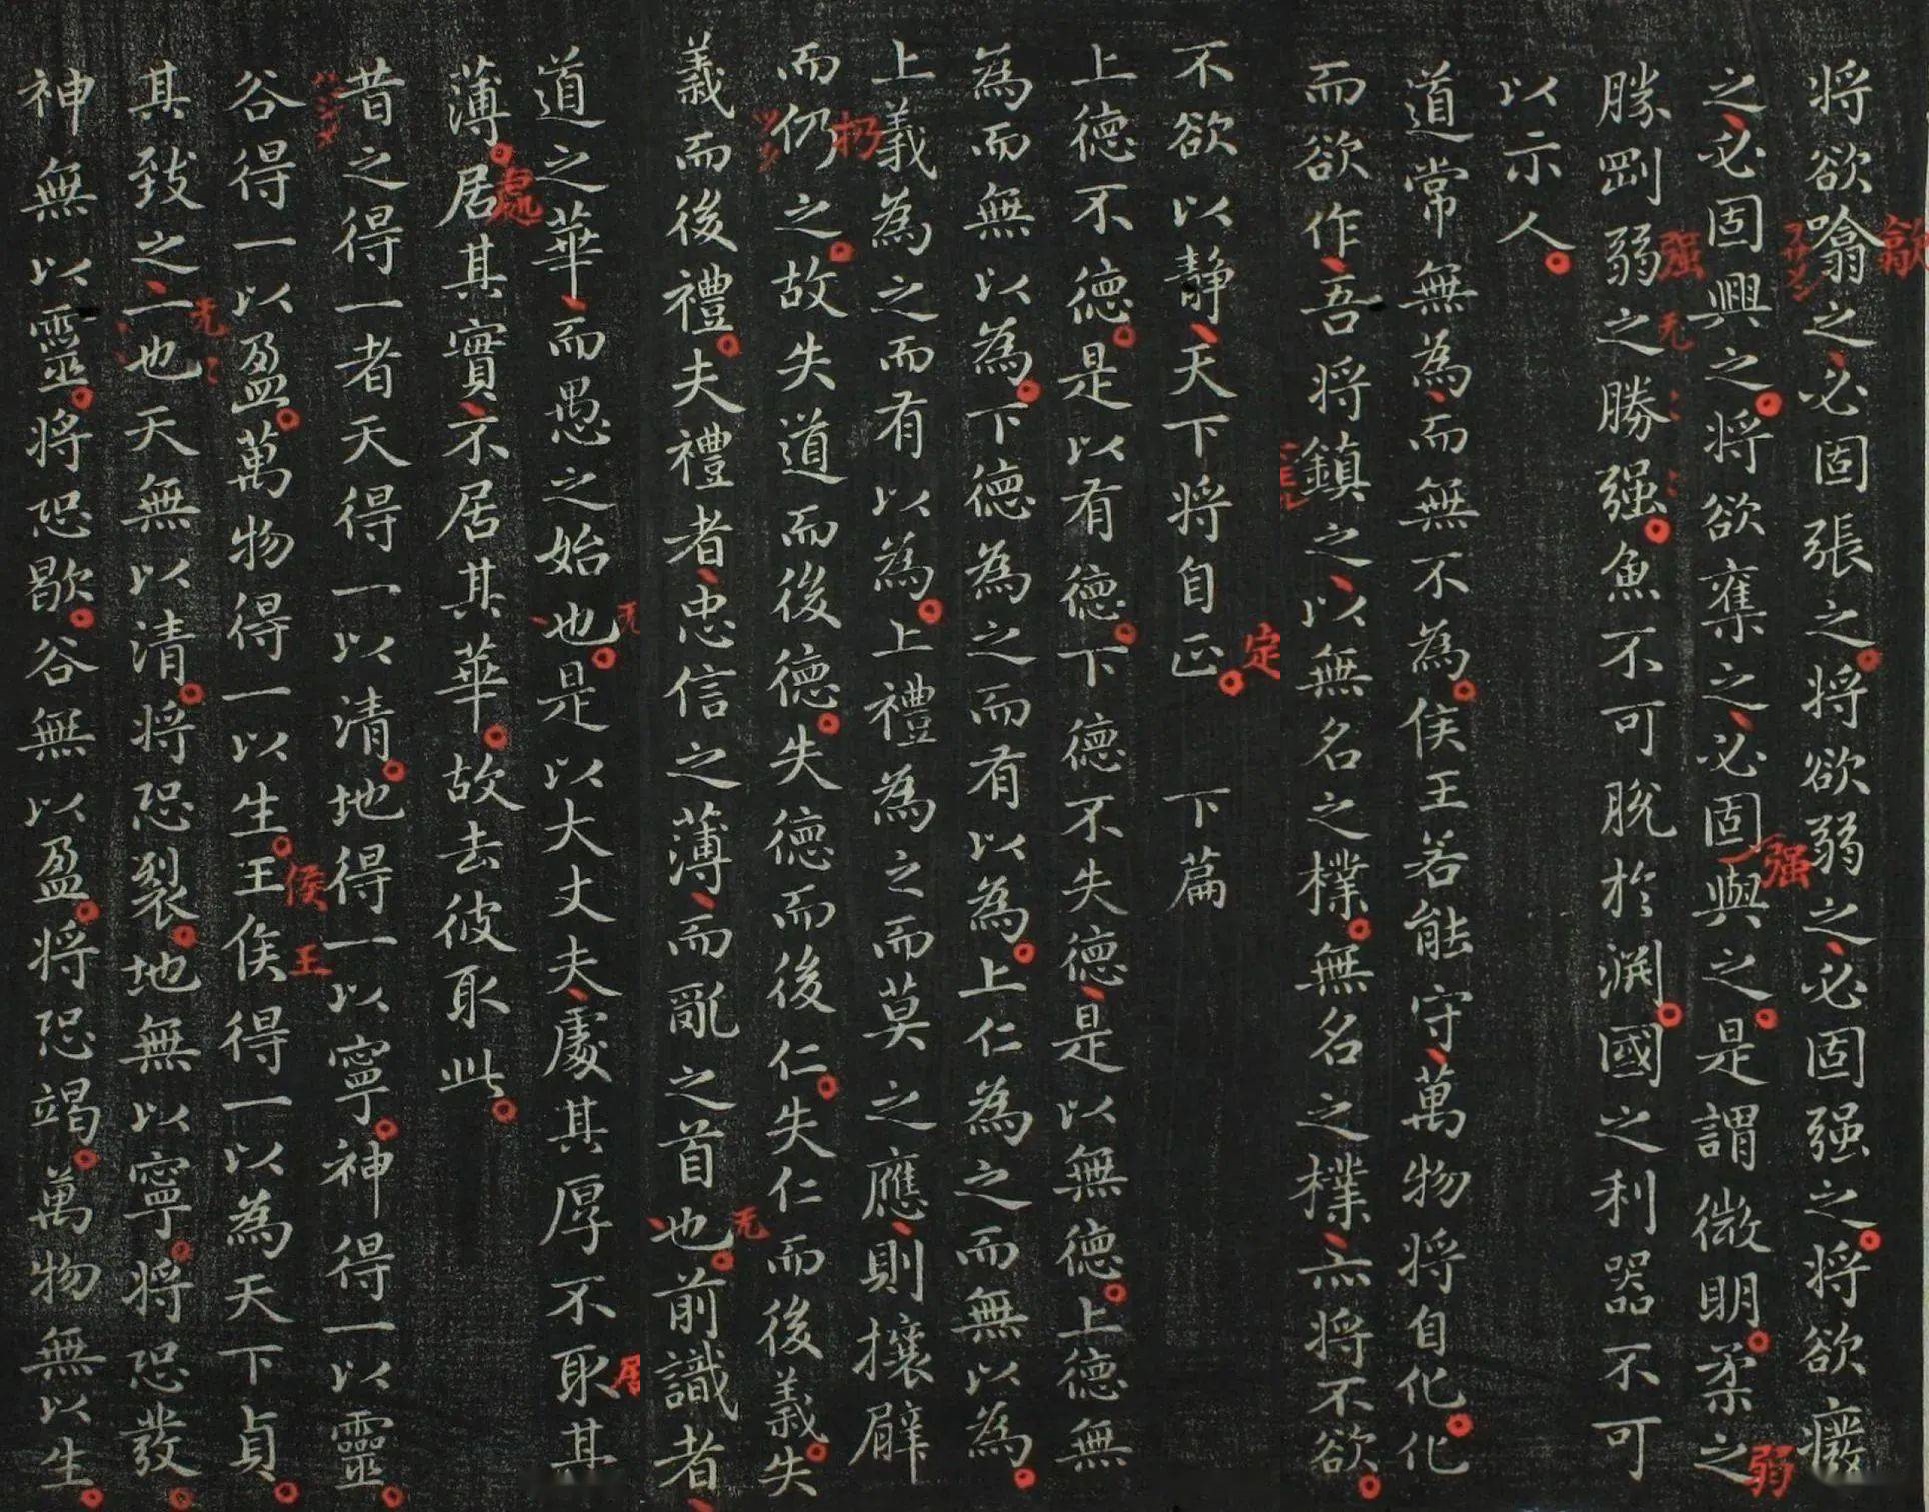 將欲噏之必固張之將欲弱之必固强之將欲癈
歙
之必固興之將欲奪之必固與之是謂微明柔之
强
弱
勝剛弱之勝强魚不可脫於淵國之利器不可
强
无
以示人
道常無為而無不為侯王若能守萬物將自化化
而欲作吾將鎮之以無名之樸無名之樸亦將不欲
不欲以靜天下將自正 下篇
定
上德不德是以有德下德不失德是以無德上德無
為而無以為下德為之而有以為上仁為之而無以為
上義為之而有以為上禮為之而莫之應則攘臂
而仍之故失道而後德失德而後仁失仁而後義失
扔
義而後禮夫禮者忠信之薄而亂之首也前識者
无
道之華而愚之始也是以大丈夫處其厚不取其
无
居
薄居其實不居其華故去彼取此
處
昔之得一者天得一以清地得一以寧神得一以靈
谷得一以盈萬物得一以生王侯得一以為天下貞
侯
王
其致之一也天無以清將恐裂地無以寧將恐發
无
神無以靈將恐歇谷無以盈將恐竭萬物無以生